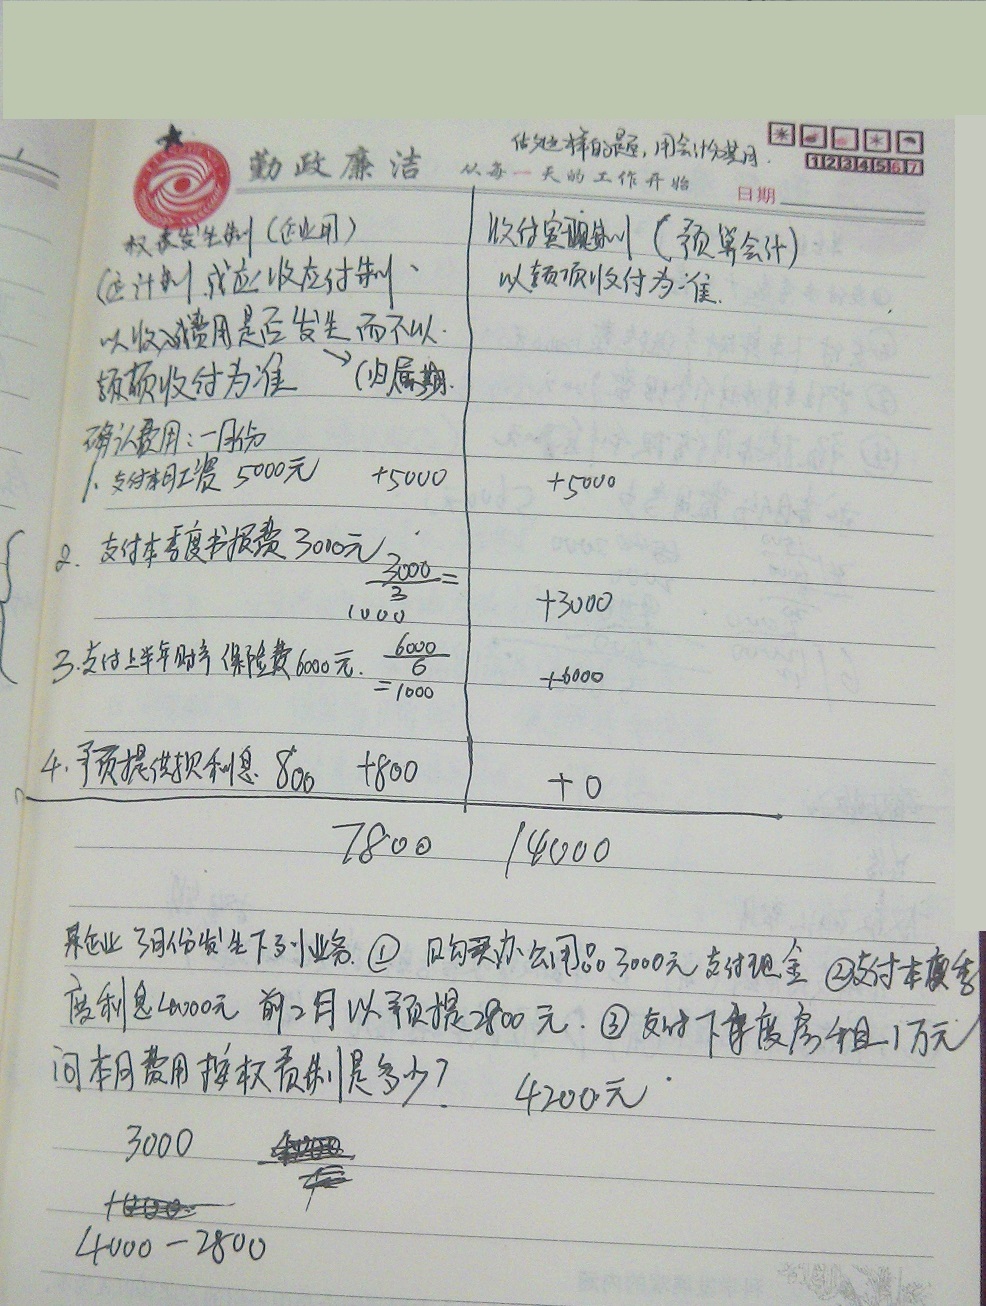 做这样的题,用会计分录用.
勤政廉洁
从每一天的工作开始
1234567
日期
权责发生制(企业用)
(应计制 或应收应付制、
以收入费用是否发生 而不以
款项收付为准 → (归属期.
确认费用:一月份
1. 支付本月工资 5000元 +5000
2. 支付本季度书报费 3000元
3000
3 =
1000
3.支付上半年财产保险费6000元.
6000
6
=1000
4. 预提借款利息 800 +800
收付实现制 (预算会计)
以款项收付为准.
+5000
+3000
+6000
+0
7800 14000
某企业 3月份发生下列业务. ① 购买办公用品3000元 支付现金 ②支付本季
度利息4000元 前二月以预提2800元. ③ 支付下季度房租1万元
问本月费用按权责制是多少? 4200元
3000
4000-2800